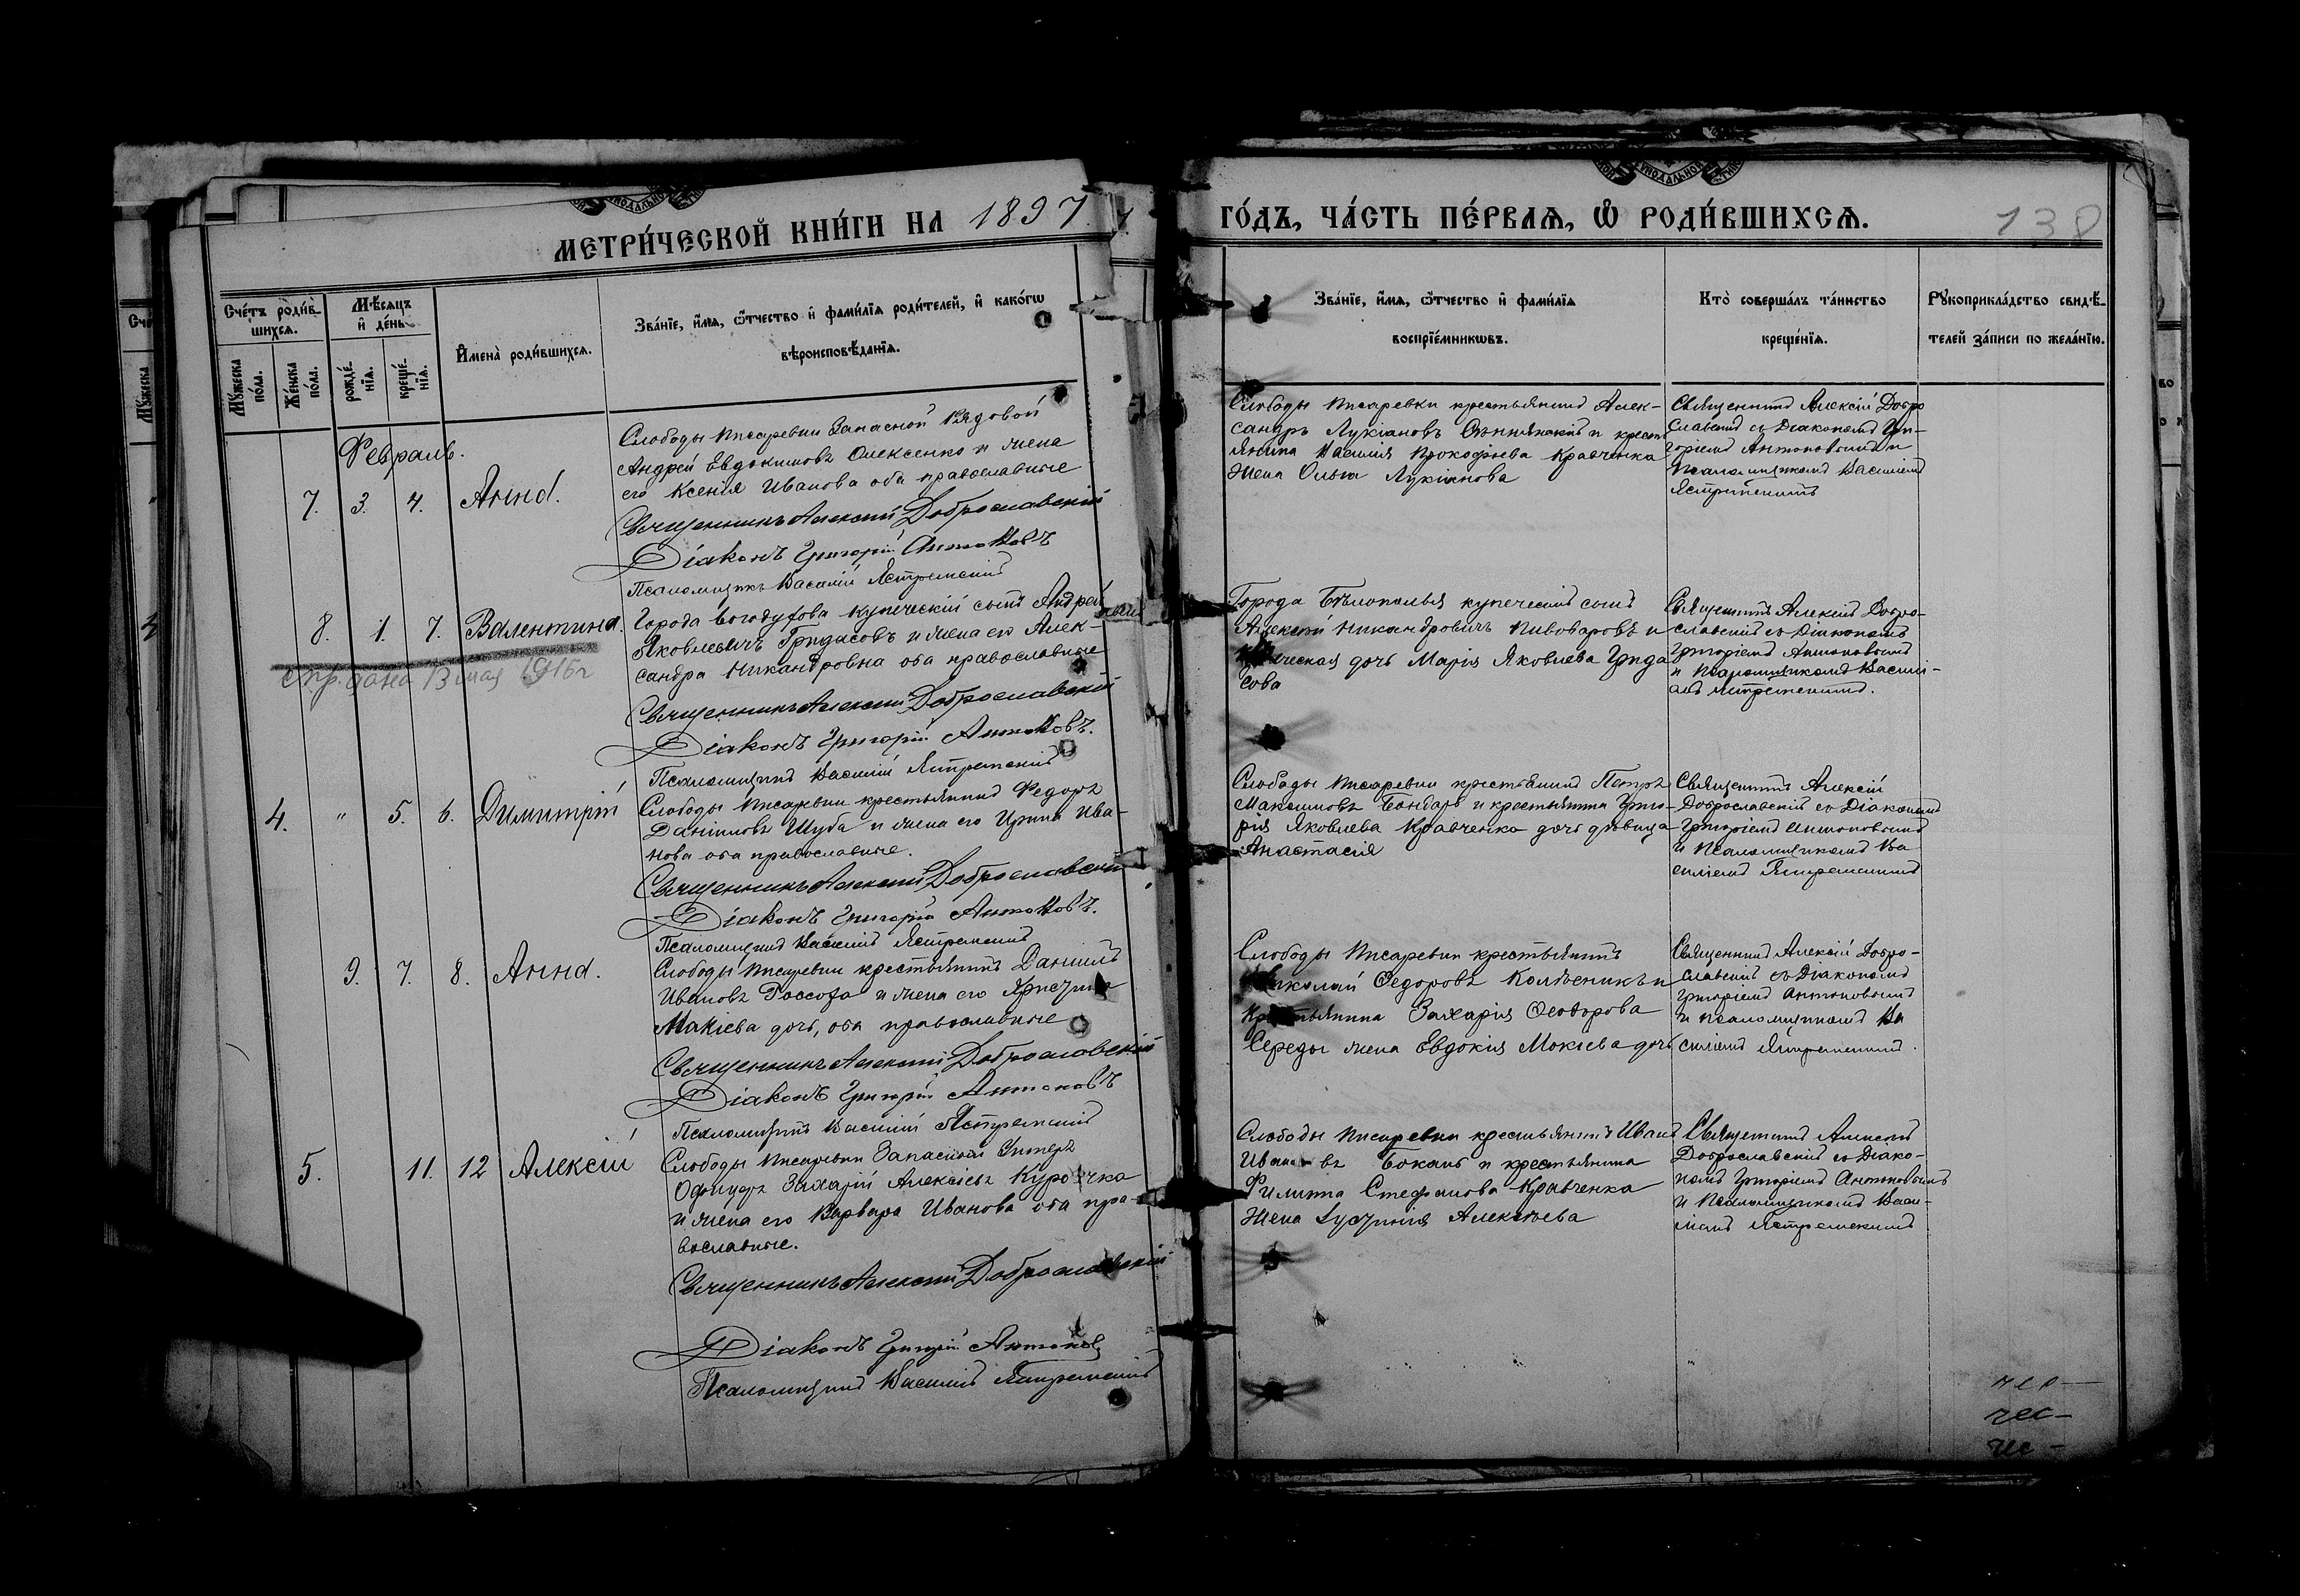 МЕТРИ́ЧЕСКОЙ КНИ́ГИ НА 1897
ГО́ДЪ, ЧА́СТЬ ПЕ́РВАѦ, Ѡ҆ РОДИ́ВШИХСѦ.
138
Сче́тъ роди́в-
шихсѧ.
Мѣ́сѧцъ
и҆ де́нь
И҆мена̀ роди́вшихсѧ.
Зва́нїе, и҆́мѧ, ѻ҆́тчество и҆ фами́лїѧ роди́телей, и҆ како́гѡ
вѣроисповѣ́данїѧ.
Мꙋ́жеска
по́ла.
Же́нска
по́ла.
рожде́-
нїѧ.
креще́-
нїѧ.
Зва́нїе, и҆́мѧ, ѻ҆́тчество и҆ фами́лїѧ
воспрїе́мникѡвъ.
Кто̀ соверша́лъ та́инство
креще́нїѧ.
Рꙋкоприкла́дство свидѣ́-
телей за́писи по жела́нїю.
Февраль.
7. 3. 4. Анна.
Слободы Писаревки Запасной Рядовой
Андрей Евдокимовъ Олексенко и жена
его Ксенія Иванова оба православные
Священникъ Алексій Доброславскій
Діаконъ Григорій Антоновъ
Псаломщикъ Василій Ястремскій
Слободы Писаревки крестьянинъ Алек-
сандръ Лукіановъ и крест
янина Василія Прокофіева Кравченка
жена Ольга Лукіанова
Священникъ Алексій Добро
славскій съ Діакономъ Гри-
горіемъ Антоновымъ и
Псаломщикомъ Василіемъ
Ястремскимъ
8. 1. 7. Валентина.
спр. дана 13 мая 1916 г
Города Богодухова купеческій сынъ Андрей
Яковлевичъ Гридасовъ и жена его Алек-
сандра Никандровна оба православные
Священникъ Алексій Доброславскій
Діаконъ Григорій Антоновъ.
Псаломщикъ Василій Ястремскій
Города Бѣлополья купеческій сынъ
Алексій Никандровичъ Пивоваровъ и
ческая дочь Марія Яковлева Грида
сова
Священникъ Алексій Добро-
славскій съ Діакономъ
Григоріемъ Антоновымъ
и Псаломщикомъ Васили-
емъ Ястремскимъ.
4. " 5. 6. Димитрій
Слободы Писаревки крестьянинъ Федоръ
Даніиловъ Шуба и жена его Ирина Ива-
нова оба православные.
Священникъ Алексій Доброславскій
Діаконъ Григорій Антоновъ.
Псаломщикъ Василій Ястремскій
Слободы Писаревки крестьянинъ Петръ
Максимовъ Бондарь и крестьянина Григо-
рія Яковлева Кравченка дочь дѣвица
Анастасія
Священникъ Алексій
Доброславскій съ Діакономъ
Григоріемъ Антоновымъ
и Псаломщикомъ Ва-
силіемъ Ястремскимъ
9. 7. 8. Анна.
Слободы Писаревки крестьянинъ Даніилъ
Ивановъ Россоха и жена его
Макіева дочь, оба православные
Священникъ Алексій Доброславскій
Діаконъ Григорій Антоновъ
Псаломщикъ Василій Ястремскій
Слободы Писаревки крестьянинъ
Николай Федоровъ и
крестьянина Захарія Феодорова
Середы жена Евдокія Мокіева дочь
Священникъ Алексій Добро-
славскій съ Діакономъ
Григоріемъ Антоновымъ
и псаломщикомъ Ва
силіемъ Ястремскимъ.
5. 11. 12 Алексій
Слободы Писаревки Запасной Унтеръ
Офицеръ Захарій Алексіевъ Курочка
и жена его Варвара Иванова оба пра-
вославные.
Священникъ Алексій Доброславскій
Діаконъ Григорій Антоновъ
Псаломщикъ Василій Ястремскій
Слободы Писаревки крестьянинъ Иванъ
Ивановъ Боканъ и крестьянина
Филиппа Стефанова Кравченка
жена Алексѣева
Священникъ Алексій
Доброславскій съ Діако-
номъ Григоріемъ Антоновымъ
и Псаломщикомъ Васи-
ліемъ Ястремскимъ